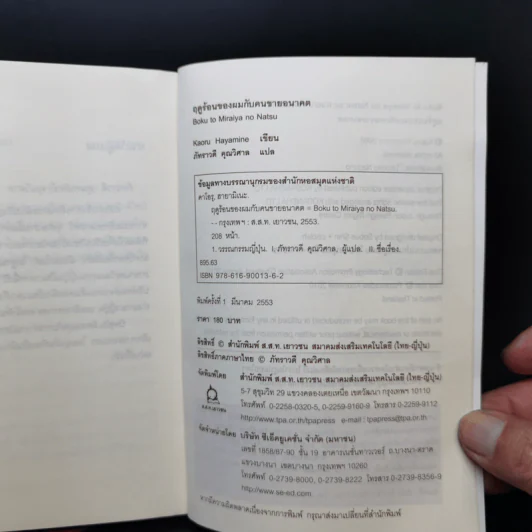 ฤดูร้อนของผมกับคนขายอนาคต
Boku to Miraiya no Natsu
Kaoru Hayamine เขียน
ภัทราวดี คุณวิศาล แปล
ข้อมูลทางบรรณานุกรมของสำนักหอสมุดแห่งชาติ
คาโอรุ, ฮายามิเนะ.
ฤดูร้อนของผมกับคนขายอนาคต = Boku to Miraiya no Natsu.
-- กรุงเทพฯ : ส.ส.ท. เยาวชน, 2553.
208 หน้า.
1. วรรณกรรมญี่ปุ่น. I. ภัทราวดี คุณวิศาล, ผู้แปล. II. ชื่อเรื่อง.
895.63
ISBN 978-616-90013-6-2
พิมพ์ครั้งที่ 1 มีนาคม 2553
ราคา 180 บาท
ลิขสิทธิ์ © สำนักพิมพ์ ส.ส.ท. เยาวชน สมาคมส่งเสริมเทคโนโลยี (ไทย-ญี่ปุ่น)
ลิขสิทธิ์ภาคภาษาไทย © ภัทราวดี คุณวิศาล
จัดพิมพ์โดย สำนักพิมพ์ ส.ส.ท. เยาวชน สมาคมส่งเสริมเทคโนโลยี (ไทย-ญี่ปุ่น)
5-7 สุขุมวิท 29 แขวงคลองเตยเหนือ เขตวัฒนา กรุงเทพฯ 10110
โทรศัพท์ 0-2258-0320-5, 0-2259-9160-8 โทรสาร 0-2259-9112
http://www.tpa.or.th/tpapress e-mail : tpapress@tpa.or.th
จัดจำหน่ายโดย บริษัท ซีเอ็ดยูเคชั่น จำกัด (มหาชน)
เลขที่ 1858/87-90 ชั้น 19 อาคารเนชั่นทาวเวอร์ ถ.บางนา-ตราด
แขวงบางนา เขตบางนา กรุงเทพฯ 10260
โทรศัพท์ 0-2739-8000, 0-2739-8222 โทรสาร 0-2739-8356-9
http://www.se-ed.com
หากมีความผิดพลาดเนื่องจากการพิมพ์ กรุณาส่งมาเปลี่ยนที่สำนักพิมพ์